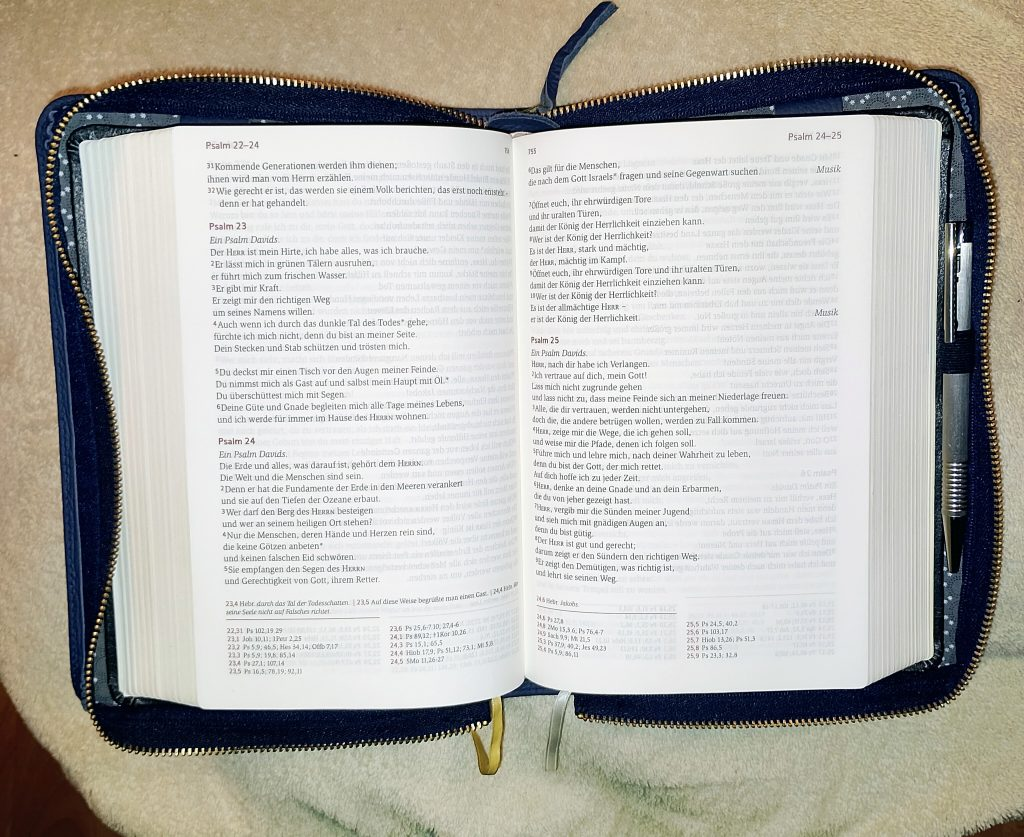 Psalm 22–24
31Kommende Generationen werden ihm dienen;
ihnen wird man vom Herrn erzählen.
32Wie gerecht er ist, das werden sie einem Volk berichten, das erst noch entsteht –
denn er hat gehandelt.
Psalm 23
Ein Psalm Davids.
Der HERR ist mein Hirte, ich habe alles, was ich brauche.
2Er lässt mich in grünen Tälern ausruhen,
er führt mich zum frischen Wasser.
3Er gibt mir Kraft.
Er zeigt mir den richtigen Weg
um seines Namens willen.
4Auch wenn ich durch das dunkle Tal des Todes* gehe,
fürchte ich mich nicht, denn du bist an meiner Seite.
Dein Stecken und Stab schützen und trösten mich.
5Du deckst mir einen Tisch vor den Augen meiner Feinde.
Du nimmst mich als Gast auf und salbst mein Haupt mit Öl.*
Du überschüttest mich mit Segen.
6Deine Güte und Gnade begleiten mich alle Tage meines Lebens,
und ich werde für immer im Hause des HERRN wohnen.
Psalm 24
Ein Psalm Davids.
Die Erde und alles, was darauf ist, gehört dem HERRN.
Die Welt und die Menschen sind sein.
2Denn er hat die Fundamente der Erde in den Meeren verankert
und sie auf den Tiefen der Ozeane erbaut.
3Wer darf den Berg des HERRN besteigen
und wer an seinem heiligen Ort stehen?
4Nur die Menschen, deren Hände und Herzen rein sind,
die keine Götzen anbeten*
und keinen falschen Eid schwören.
5Sie empfangen den Segen des HERRN
und Gerechtigkeit von Gott, ihrem Retter.
23,4 Hebr. durch das Tal der Todesschatten. | 23,5 Auf diese Weise begrüßte man einen Gast. | 24,4 Hebr.
seine Seele nicht auf Falsches richtet.
22,31 Ps 102,19.29
23,1 Joh 10,11; 1Petr 2,25
23,2 Ps 5,9; 46,5; Hes 34,14; Offb 7,17
23,3 Ps 5,9; 19,8; 85,14
23,4 Ps 27,1; 107,14
23,5 Ps 16,5; 78,19; 92,11
23,6 Ps 25,6-7.10; 27,4-6
24,1 Ps 89,12; 1Kor 10,26
24,3 Ps 15,1; 65,5
24,4 Hiob 17,9; Ps 51,12; 73,1; Mt 5,8
24,5 5Mo 11,26-27
755
Psalm 24–25
6Das gilt für die Menschen,
die nach dem Gott Israels* fragen und seine Gegenwart suchen. Musik
7Öffnet euch, ihr ehrwürdigen Tore
und ihr uralten Türen,
damit der König der Herrlichkeit einziehen kann.
8Wer ist der König der Herrlichkeit?
Es ist der HERR, stark und mächtig,
der HERR, mächtig im Kampf.
9Öffnet euch, ihr ehrwürdigen Tore und ihr uralten Türen,
damit der König der Herrlichkeit einziehen kann.
10Wer ist der König der Herrlichkeit?
Es ist der allmächtige HERR –
er ist der König der Herrlichkeit. Musik
Psalm 25
Ein Psalm Davids.
HERR, nach dir habe ich Verlangen.
2Ich vertraue auf dich, mein Gott!
Lass mich nicht zugrunde gehen
und lass nicht zu, dass meine Feinde sich an meiner Niederlage freuen.
3Alle, die dir vertrauen, werden nicht untergehen,
doch die, die andere betrügen wollen, werden zu Fall kommen.
4HERR, zeige mir die Wege, die ich gehen soll,
und weise mir die Pfade, denen ich folgen soll.
5Führe mich und lehre mich, nach deiner Wahrheit zu leben,
denn du bist der Gott, der mich rettet.
Auf dich hoffe ich zu jeder Zeit.
6HERR, denke an deine Gnade und an dein Erbarmen,
die du von jeher gezeigt hast.
7HERR, vergib mir die Sünden meiner Jugend
und sieh mich mit gnädigen Augen an,
denn du bist gütig.
8Der HERR ist gut und gerecht;
darum zeigt er den Sündern den richtigen Weg.
9Er zeigt den Demütigen, was richtig ist,
und lehrt sie seinen Weg.
24,6 Hebr. Jakobs.
24,6 Ps 27,8
24,8 2Mo 15,3.6; Ps 76,4-7
24,9 Sach 9,9; Mt 21,5
25,3 Ps 37,9; 40,2; Jes 49,23
25,4 Ps 5,9; 86,11
25,5 Ps 24,5; 40,2
25,6 Ps 103,17
25,7 Hiob 13,26; Ps 51,3
25,8 Ps 86,5
25,9 Ps 23,3; 32,8